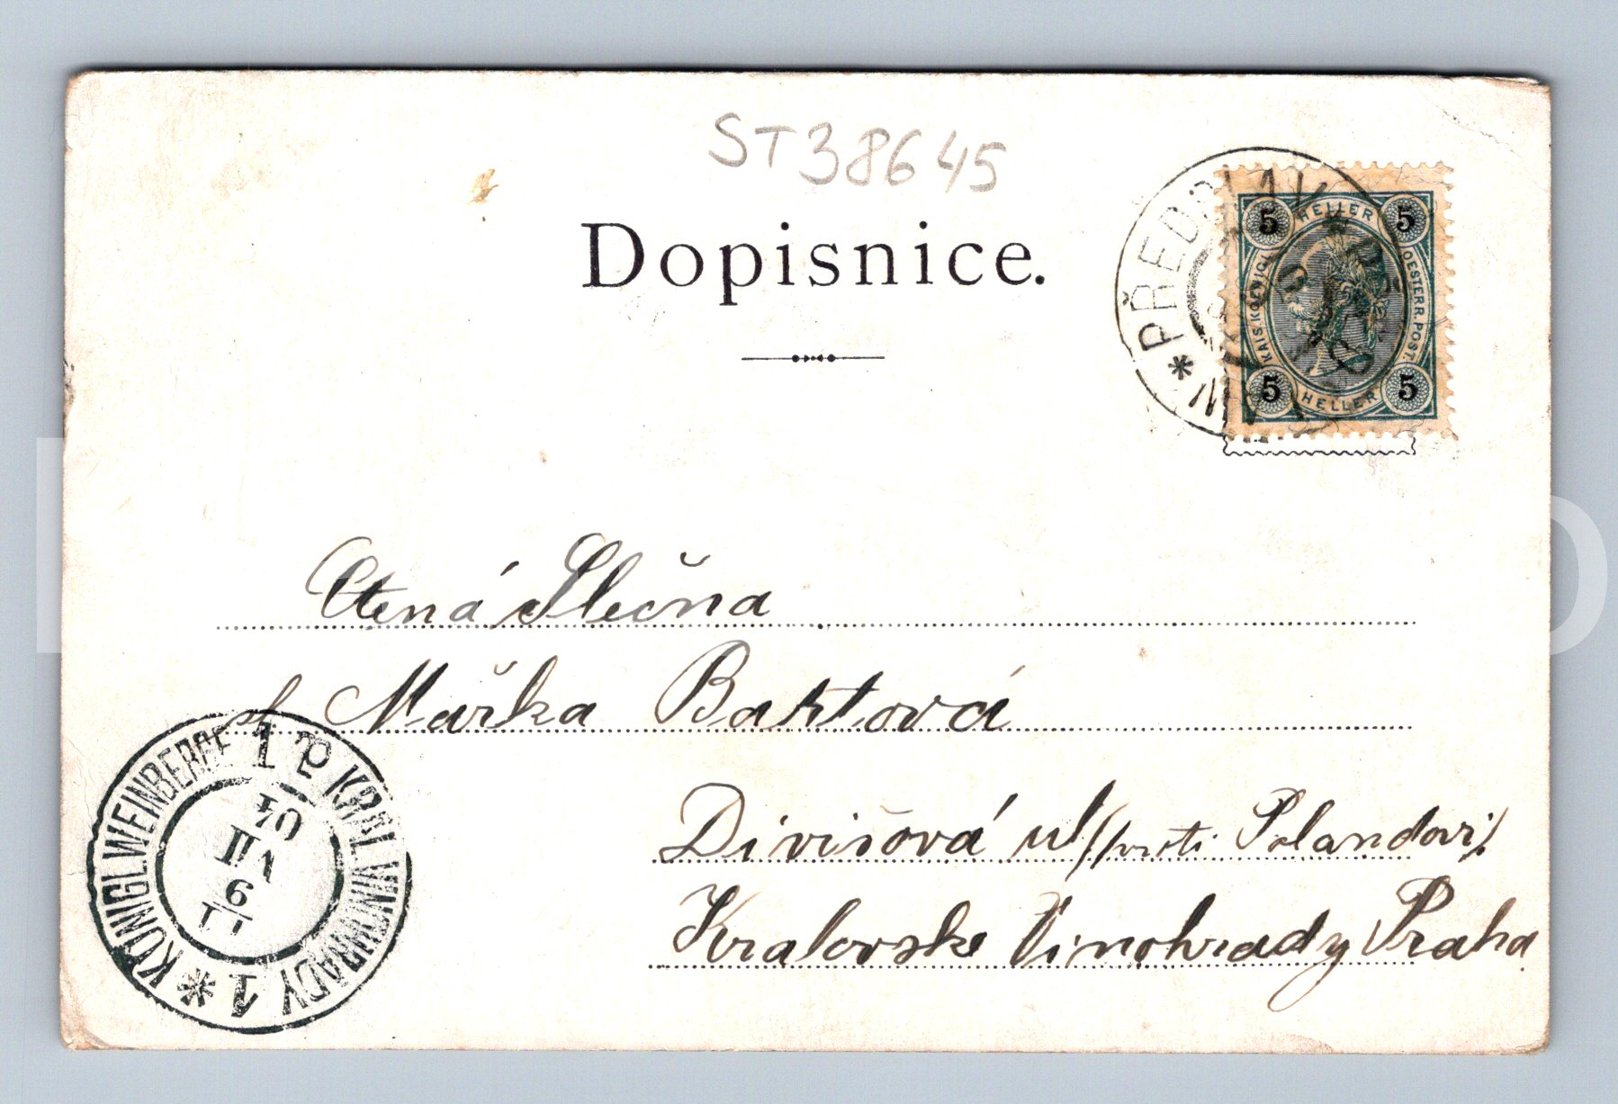 ST38645
Dopisnice.
PŘEDSLAV
5 HELLER 5
KAIS. KOENIGL. OESTERR. POST.
5 HELLER 5
Ctená Slečna
sl Mařka Baktová
Divišová ul proti
Kralovske Vinohrady Praha
KÖNIGL. WEINBERGE 1 KRÁL. VINOHRADY 1
6